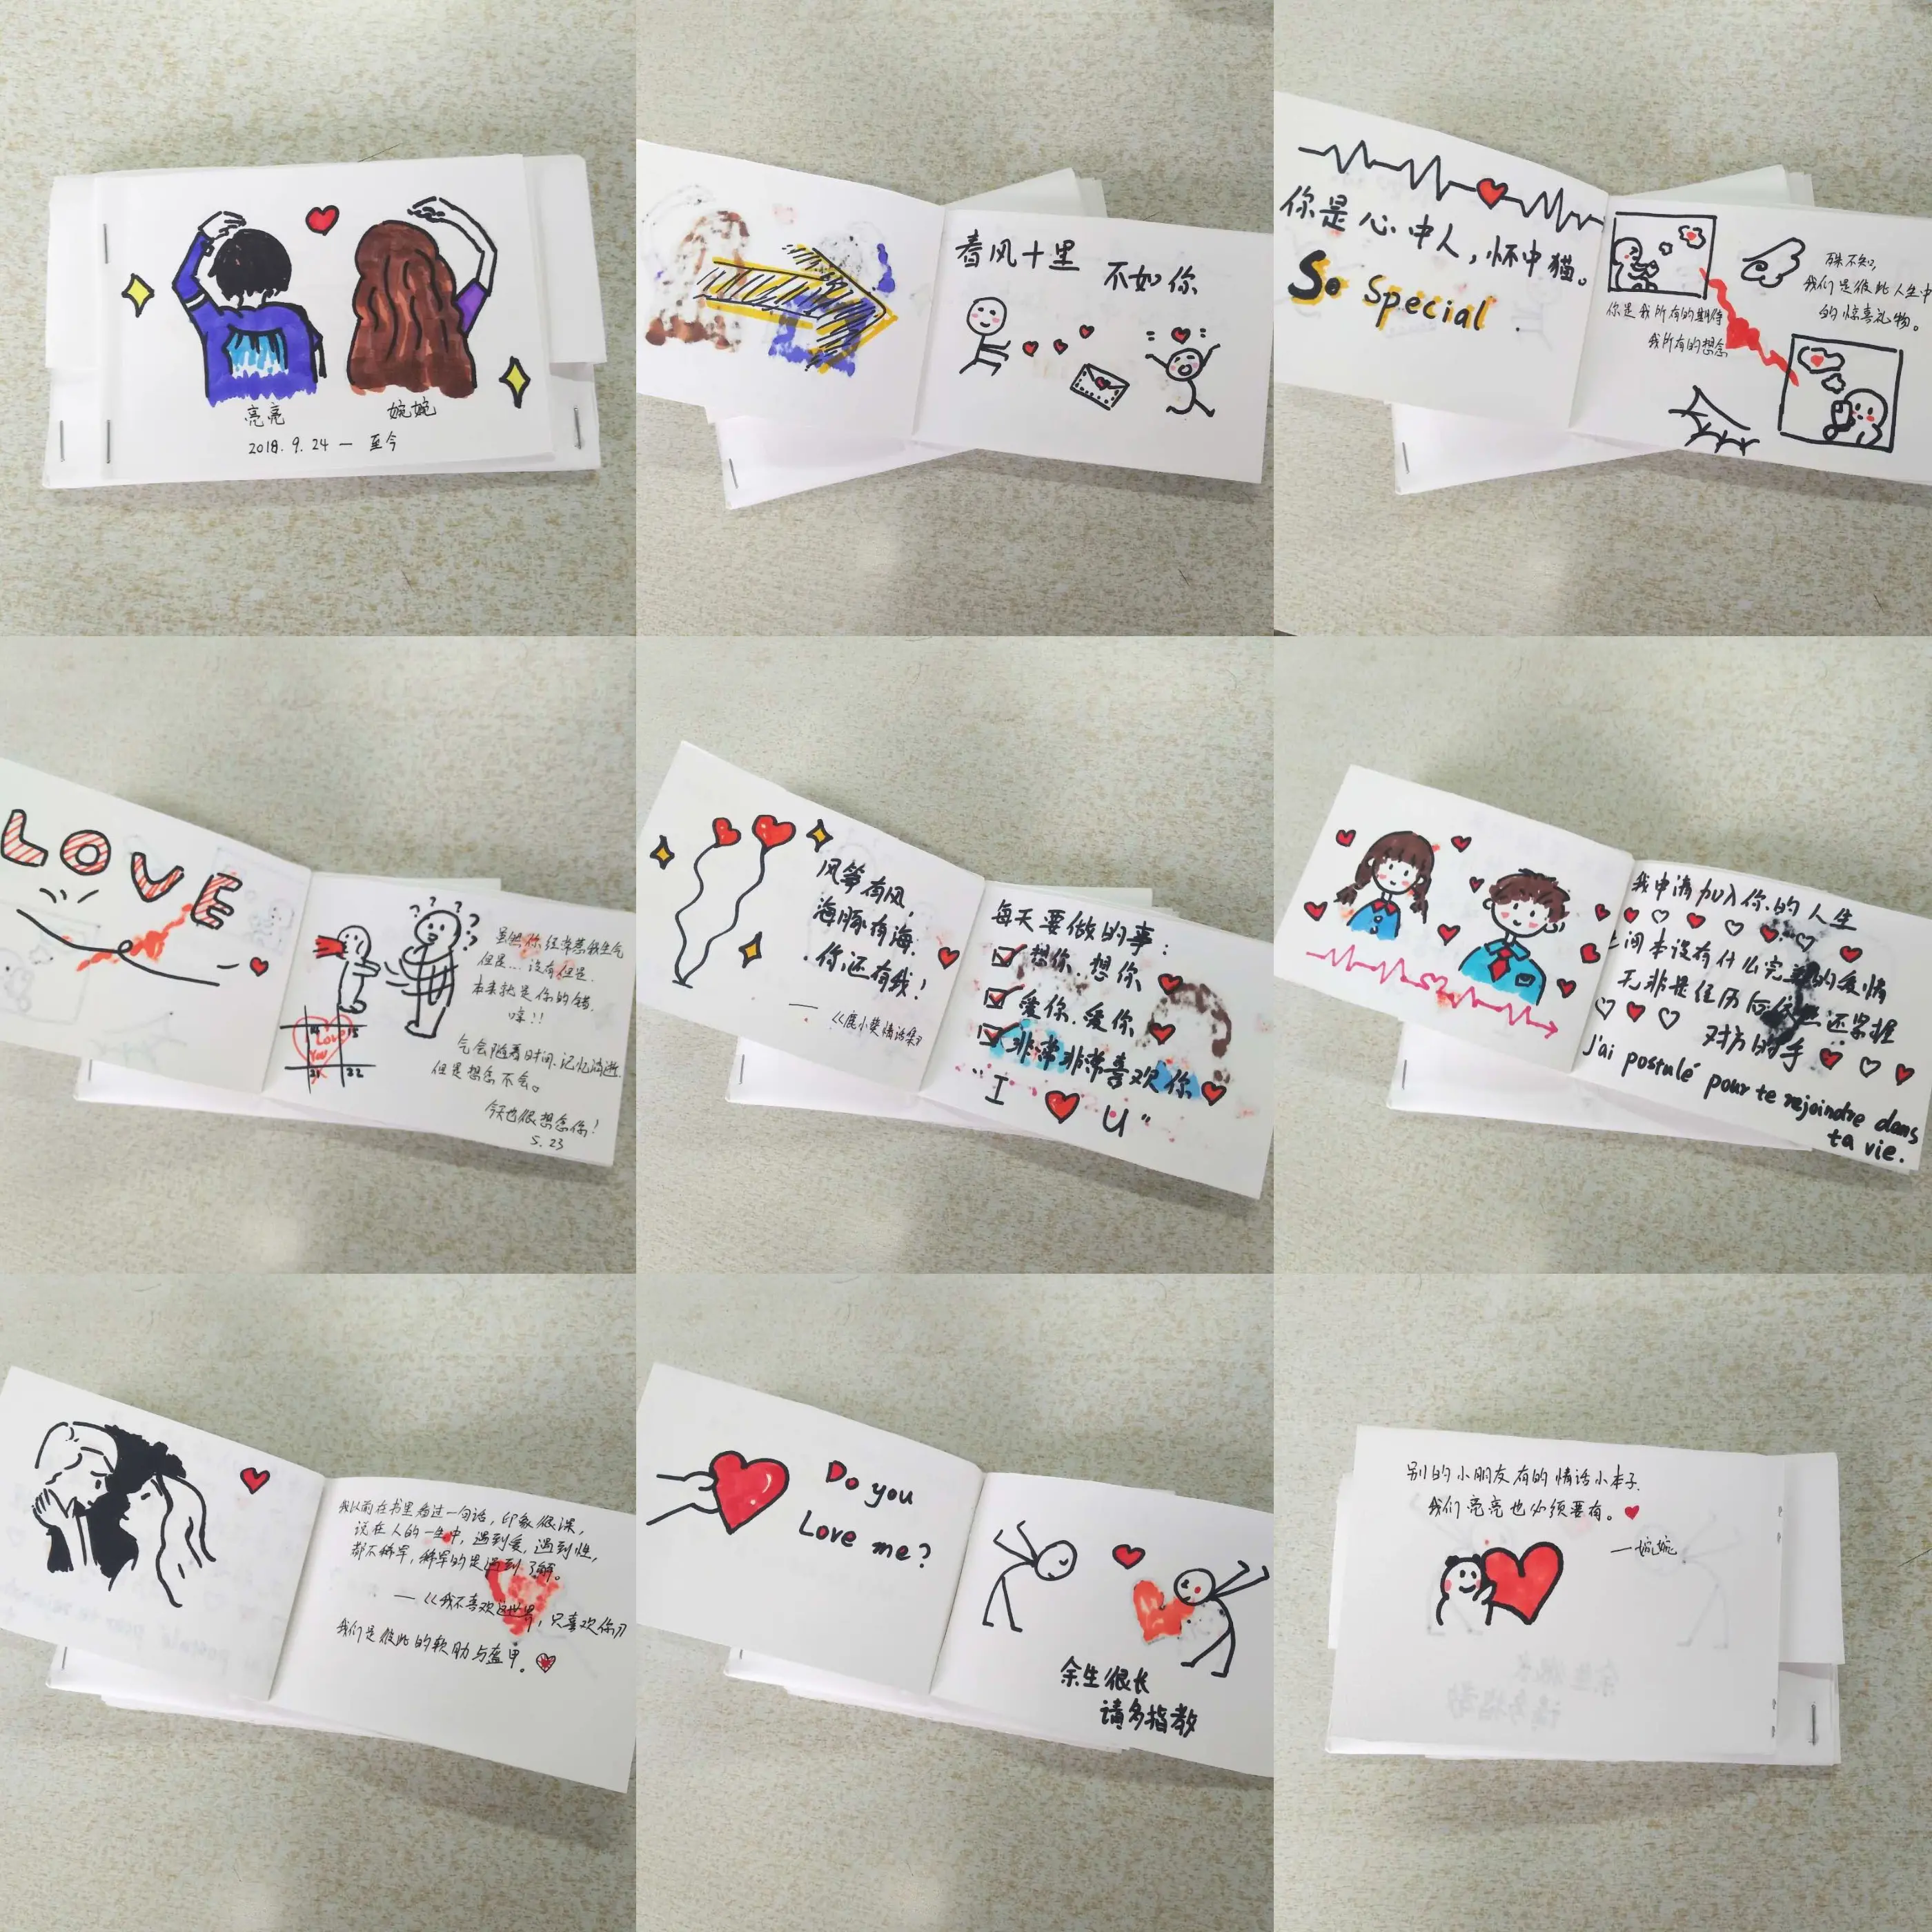 亮亮
婉婉
2018.9.24 — 至今
春风十里
不如你
你是心中人，怀中猫。
So Special
你是我所有的期待
我所有的想念
殊不知,
我们是彼此人生中
的惊喜礼物。
LOVE
虽然你经常惹我生气
但是...没有但是.
本来就是你的错.
哼!!
气会随着时间.记忆消逝.
但是想念不会。
今天也很想念你!
5.23
Love
You
14 15
21 22
风筝有风,
海豚有海.
你,还有我!
— 《鹿小葵情话集》
每天要做的事:
想你.想你
爱你.爱你
非常非常喜欢你
"I ♥ U"
我申请加入你的人生
间本没有什么完美的爱情
无非是经历后依然还紧握
对方的手
J'ai postulé pour te rejoindre dans
ta vie.
我以前在书里看过一句话，印象很深，
说在人的一生中，遇到爱，遇到性，
都不稀罕，稀罕的是遇到了解。
— 《我不喜欢这世界，只喜欢你》
我们是彼此的软肋与盔甲。
Do you
Love me?
余生很长
请多指教
别的小朋友有的情话小本子.
我们亮亮也必须要有。
—婉婉